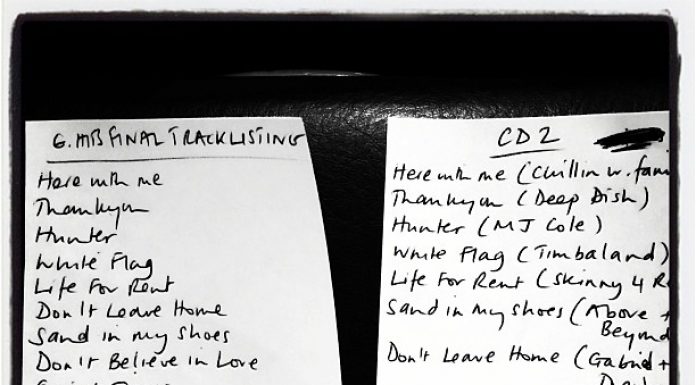 G.HITS FINAL TRACKLISTING
Here with me
Thankyou
Hunter
White Flag
Life For Rent
Don't Leave Home
Sand in my shoes
Don't Believe in Love
CD2
Here with me (Chillin w. fam
Thankyou (Deep Dish)
Hunter (MJ Cole)
White Flag (Timbaland)
Life For Rent (Skinny 4 R
Sand in my shoes (Above +
Beyond
Don't Leave Home (Gabriel +